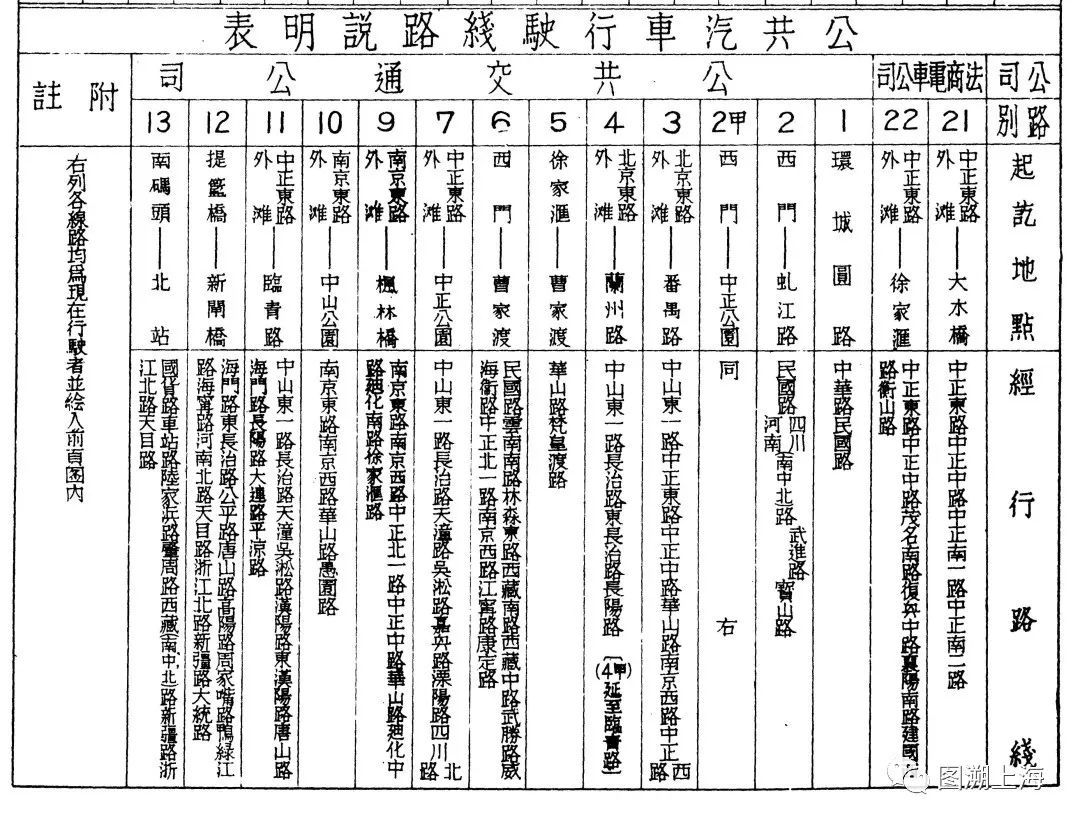 公共汽車行駛綫路説明表
公司
法商電車公司
公共交通公司
附註
路別
21
22
1
2
2甲
3
4
5
6
7
9
10
11
12
13
起訖地點
中正東路外灘——大水橋
中正東路外灘——徐家滙
環城圓路
西門——虬江路
西門——中正公園
北京東路外灘——番禺路
北京東路外灘——蘭州路
徐家滙——曹家渡
西門——曹家渡
中正東路外灘——中正公園
南京東路外灘——楓林橋
南京東路外灘——中山公園
中正東路外灘——臨青路
提籃橋——新閘橋
南碼頭——北站
經行路綫
中正東路中正中路中正南一路中正南二路
中正東路中正中路茂名南路復兴中路襄陽南路建國
路衡山路
中華路民國路
民國路四川河南南中北路武進路寶山路
同右
中山東一路中正東路中正中路華山路南京西路中正西路
中山東一路長治路東長治路長陽路〔(4甲)延至臨青路〕
華山路梵皇渡路
民國路雲南南路林森東路西藏南路西藏中路武勝路威
海衛路中正北一路南京西路江寧路康定路
中山東一路長治路天潼路吳淞路嘉兴路溧陽路四川北路
南京東路南京西路中正北一路中正中路華山路廸化中
路廸化南路徐家滙路
南京東路南京西路華山路愚園路
中山東一路長治路天潼吳淞路漢陽路東漢陽路唐山路
海門路長陽路大連路平凉路
海門路東長治路公平路唐山路高陽路周家嘴路鴨緑江
路海寧路河南北路天目路浙江北路新疆路大統路
國貨路車站路陸家浜路肇周路西藏(南中北路新疆路浙
江北路天目路
右列各線路均爲現在行駛者並绘入前頁図内
图溯上海